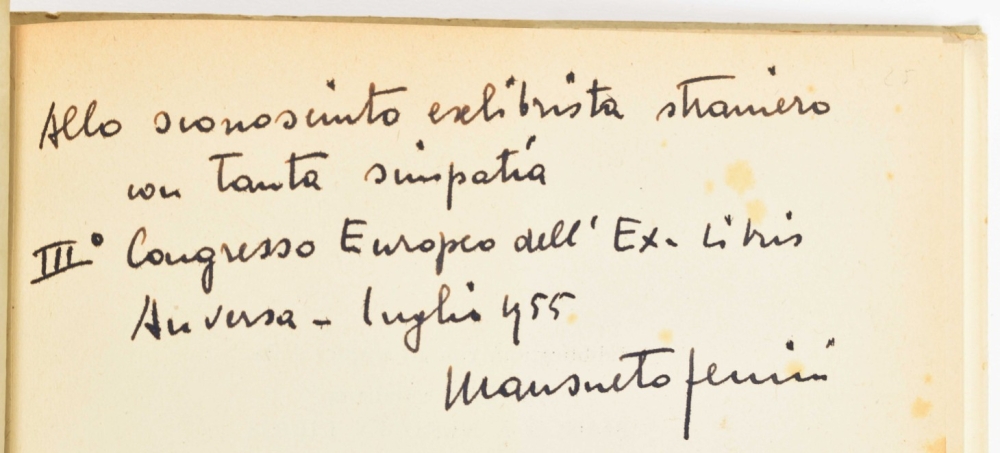 Allo sconosciuto exlibrista straniero
con tanta simpatia
III° Congresso Europeo dell' Ex-Libris
Anversa - luglio 1955
Mansueto Fenini